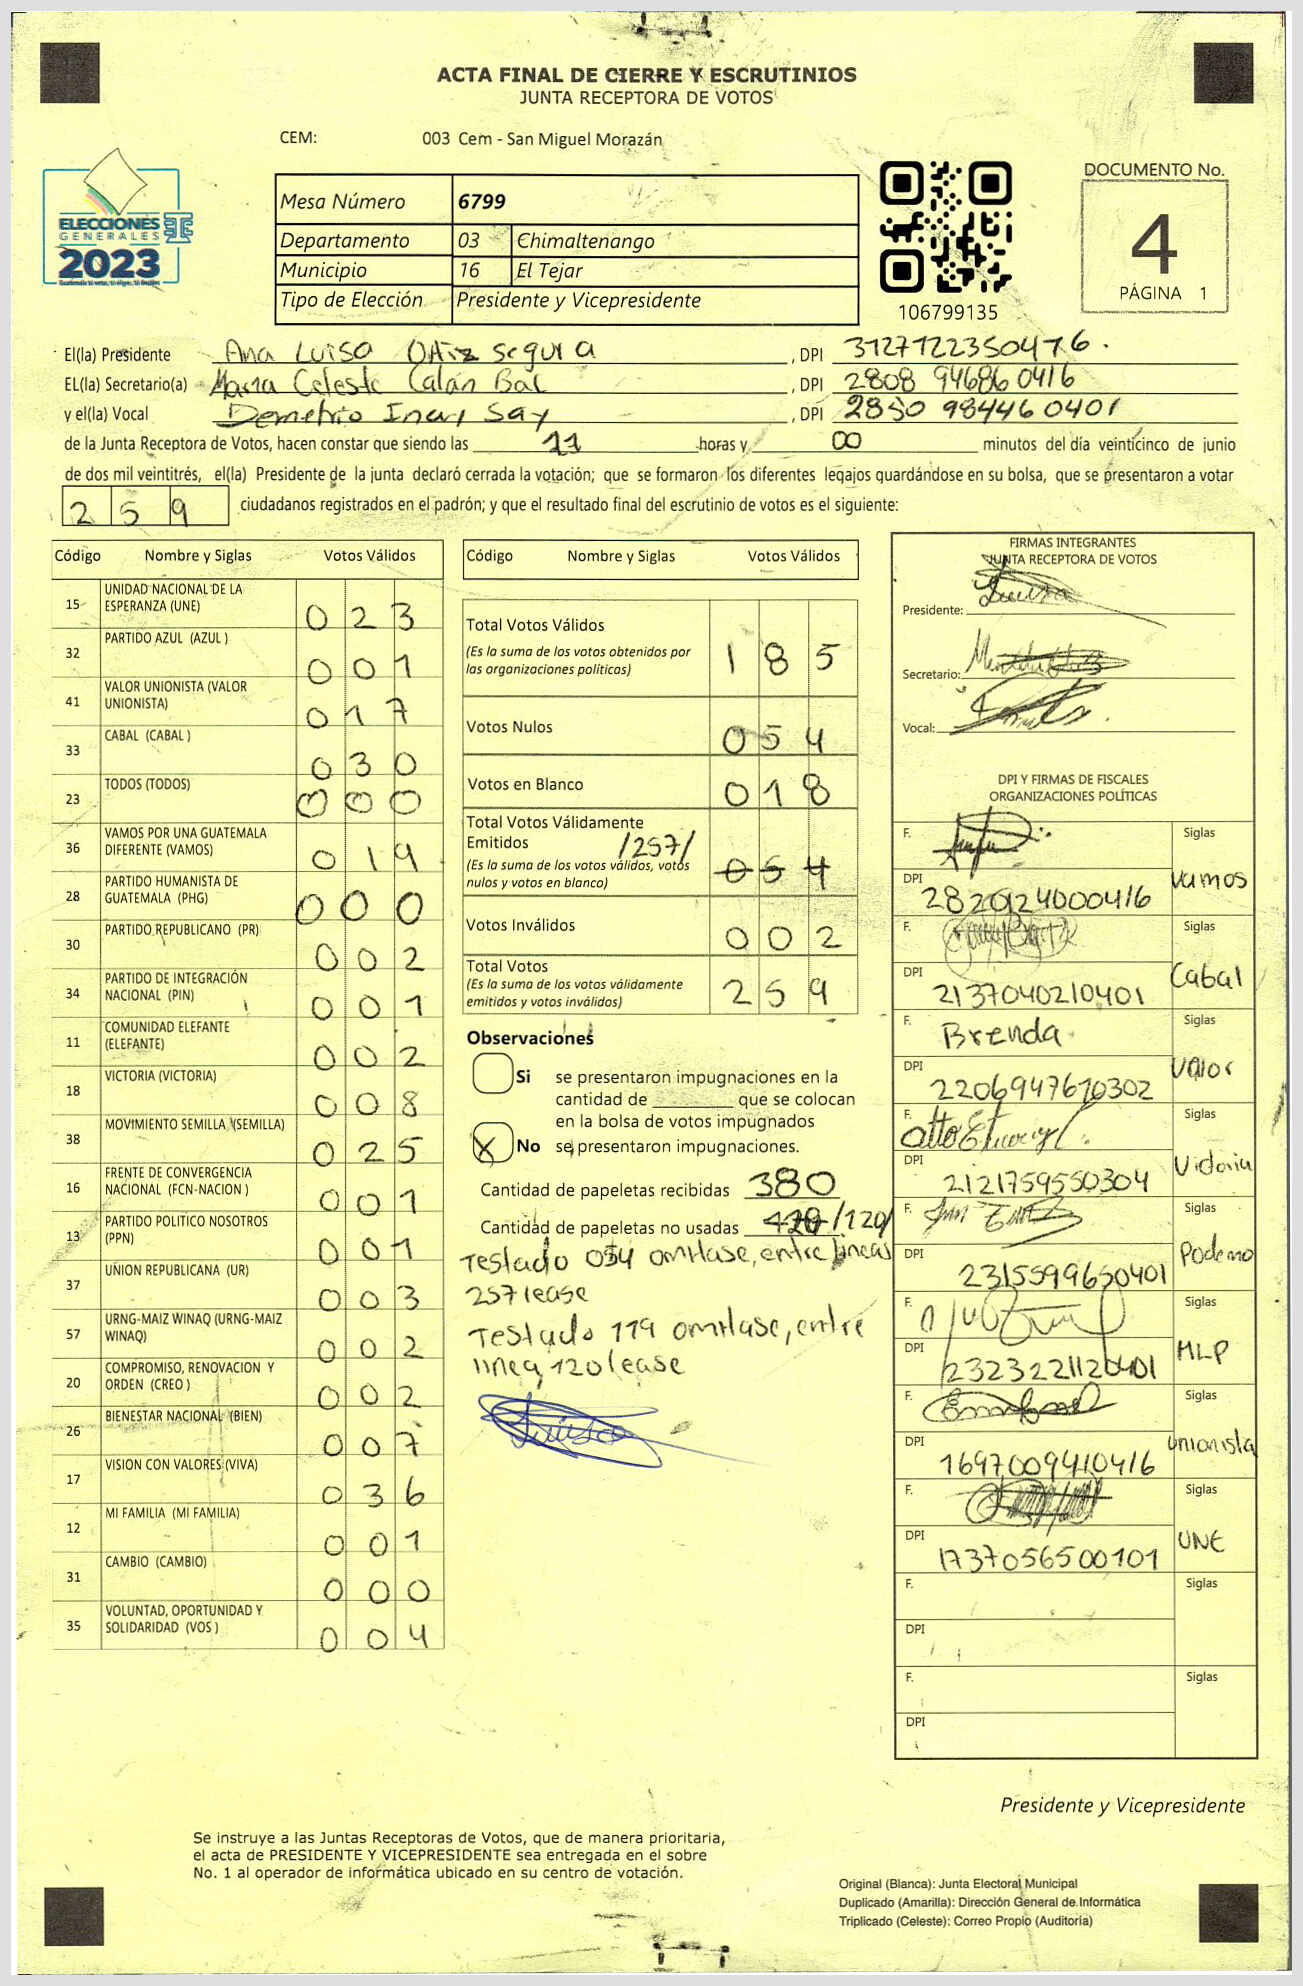 ACTA FINAL DE CIERRE Y ESCRUTINIOS
JUNTA RECEPTORA DE VOTOS
CEM: 003 Cem - San Miguel Morazán
ELECCIONES
GENERALES
2023
Mesa Número 6799
Departamento 03 Chimaltenango
Municipio 16 El Tejar
Tipo de Elección Presidente y Vicepresidente
106799135
DOCUMENTO No.
4
PÁGINA 1
El(la) Presidente Ana Luisa Ortiz Segura, DPI 3127122350416.
EL(la) Secretario(a) Maria Celeste Calán Bal, DPI 2808 94686 0416
y el(la) Vocal Demetrio Inay Say, DPI 2850 98446 0401
de la Junta Receptora de Votos, hacen constar que siendo las 11 horas y 00 minutos del día veinticinco de junio
de dos mil veintitrés, el(la) Presidente de la junta declaró cerrada la votación; que se formaron los diferentes legajos guardándose en su bolsa, que se presentaron a votar
259 ciudadanos registrados en el padrón; y que el resultado final del escrutinio de votos es el siguiente:
Código Nombre y Siglas Votos Válidos
15 UNIDAD NACIONAL DE LA ESPERANZA (UNE) 023
32 PARTIDO AZUL (AZUL ) 001
41 VALOR UNIONISTA (VALOR UNIONISTA) 017
33 CABAL (CABAL ) 030
23 TODOS (TODOS) 000
36 VAMOS POR UNA GUATEMALA DIFERENTE (VAMOS) 019
28 PARTIDO HUMANISTA DE GUATEMALA (PHG) 000
30 PARTIDO REPUBLICANO (PR) 002
34 PARTIDO DE INTEGRACIÓN NACIONAL (PIN) 001
11 COMUNIDAD ELEFANTE (ELEFANTE) 002
18 VICTORIA (VICTORIA) 008
38 MOVIMIENTO SEMILLA (SEMILLA) 025
16 FRENTE DE CONVERGENCIA NACIONAL (FCN-NACION ) 001
13 PARTIDO POLITICO NOSOTROS (PPN) 001
37 UNION REPUBLICANA (UR) 003
57 URNG-MAIZ WINAQ (URNG-MAIZ WINAQ) 002
20 COMPROMISO, RENOVACION Y ORDEN (CREO ) 002
26 BIENESTAR NACIONAL (BIEN) 007
17 VISION CON VALORES (VIVA) 036
12 MI FAMILIA (MI FAMILIA) 001
31 CAMBIO (CAMBIO) 000
35 VOLUNTAD, OPORTUNIDAD Y SOLIDARIDAD (VOS ) 004
Código Nombre y Siglas Votos Válidos
Total Votos Válidos 185
(Es la suma de los votos obtenidos por
las organizaciones políticas)
Votos Nulos 054
Votos en Blanco 018
Total Votos Válidamente
Emitidos /257/ 054
(Es la suma de los votos válidos, votos
nulos y votos en blanco)
Votos Inválidos 002
Total Votos 259
(Es la suma de los votos válidamente
emitidos y votos inválidos)
Observaciones
Si se presentaron impugnaciones en la
cantidad de ________ que se colocan
en la bolsa de votos impugnados
X No se presentaron impugnaciones.
Cantidad de papeletas recibidas 380
Cantidad de papeletas no usadas /120/
Testado 054 omitase, entre lineas
257 lease
Testado 119 omitase, entre
linea, 120 lease
FIRMAS INTEGRANTES
JUNTA RECEPTORA DE VOTOS
Presidente:
Secretario:
Vocal:
DPI Y FIRMAS DE FISCALES
ORGANIZACIONES POLÍTICAS
F. Siglas
DPI 2829124000416 Vamos
F. Siglas
DPI 2137040210401 Cabal
F. Brenda Siglas
DPI 2206947610302 Valor
F. Siglas
DPI 2121759550304 Victoria
F. Siglas
DPI 2315599650401 Podemo
F. Siglas
DPI 2323221120401 MLP
F. Siglas
DPI 1697009410416 unionista
F. Siglas
DPI 1737056500101 UNE
F. Siglas
DPI
F. Siglas
DPI
Presidente y Vicepresidente
Se instruye a las Juntas Receptoras de Votos, que de manera prioritaria,
el acta de PRESIDENTE Y VICEPRESIDENTE sea entregada en el sobre
No. 1 al operador de informática ubicado en su centro de votación.
Original (Blanca): Junta Electoral Municipal
Duplicado (Amarilla): Dirección General de Informática
Triplicado (Celeste): Correo Propio (Auditoria)